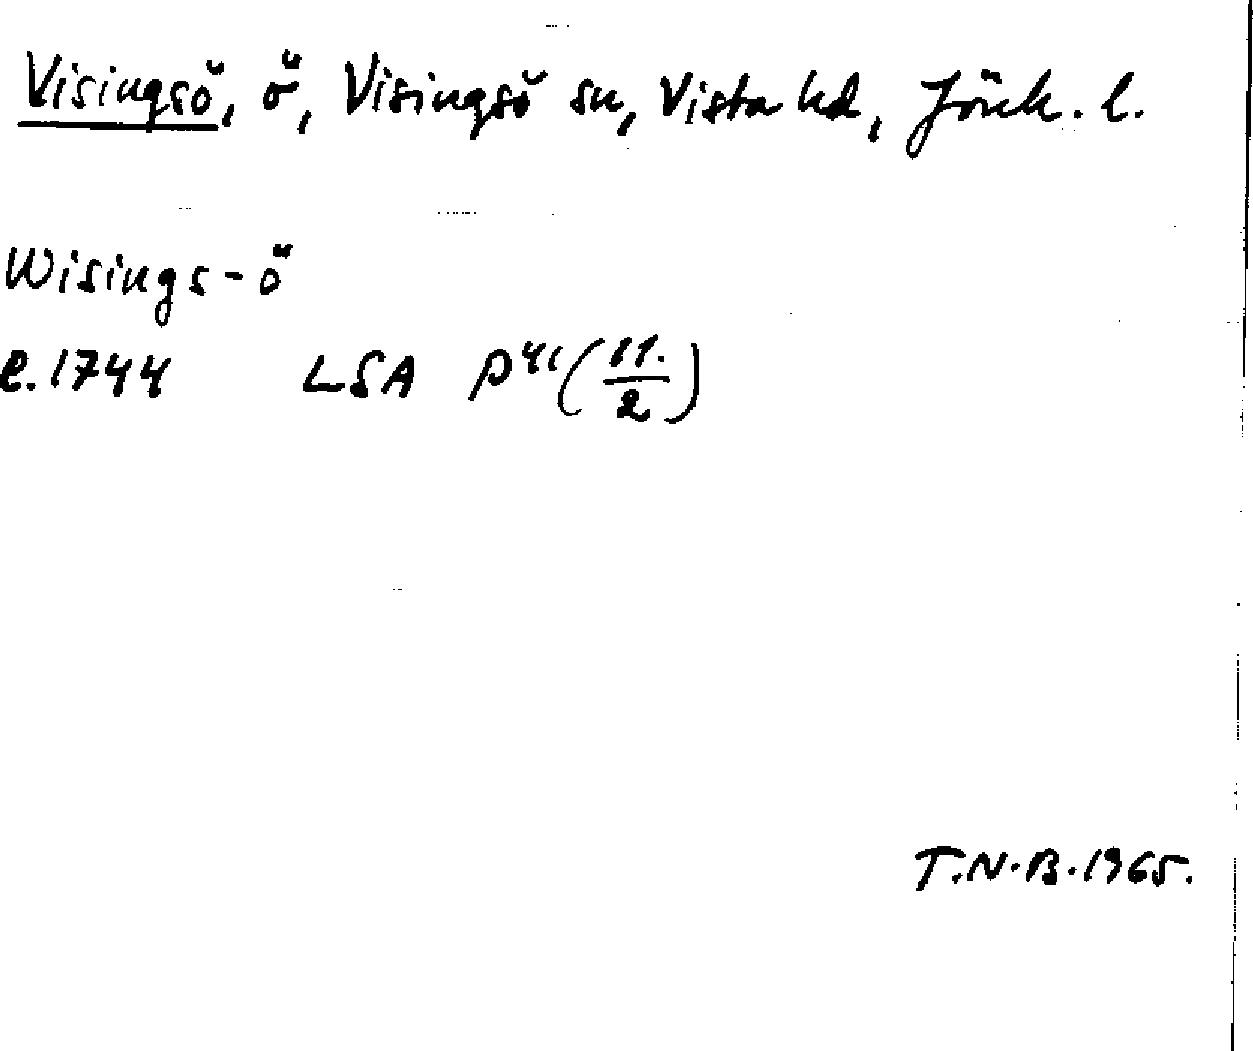 Visingsö, ö, Visingsö sn, Vista hd, Jönk. l.
Wisings-ö
e. 1744 LSA P⁴¹ (11./2)
T.N.B. 1965.